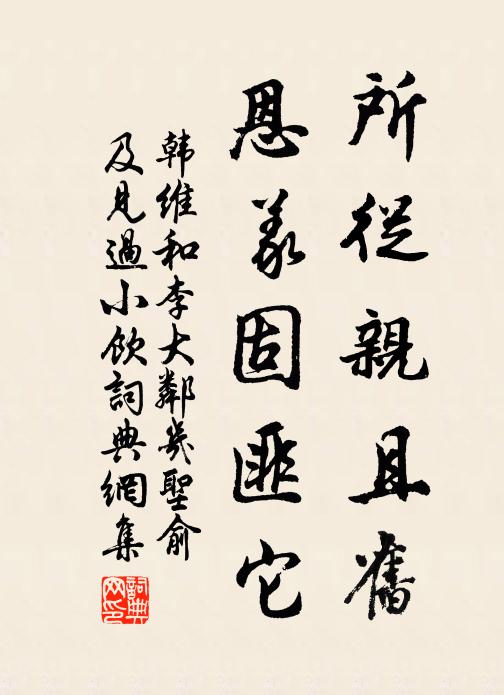 所從親且舊
恩義固匪它
韩維和李大鄰幾聖俞
及見過小飲詞典網集
詞典网印